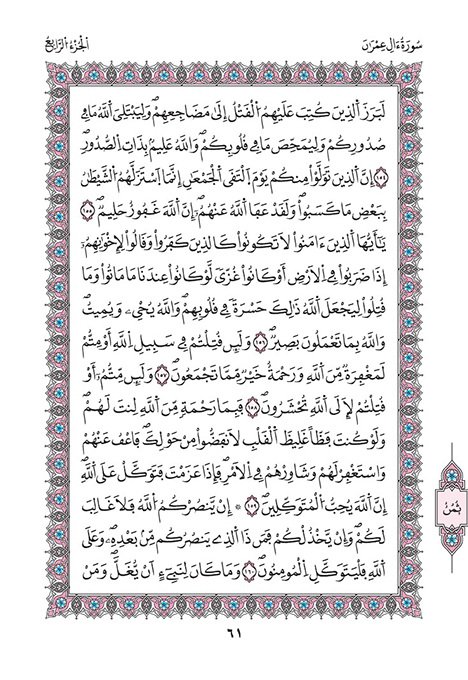 سُورَةُ ءَالِ عِمْرَٰنَ
اَلْجُزْءُ اُلرَّابِعُ
لَبَرَزَ اَلذِينَ كُتِبَ عَلَيْهِمُ اُلْقَتْلُ إِلَىٰ مَضَاجِعِهِمْۖ وَلِيَبْتَلِيَ اَللَّهُ مَا فِے
صُدُورِكُمْ وَلِيُمَحِّصَ مَا فِے قُلُوبِكُمْۖ وَاللَّهُ عَلِيمُۢ بِذَاتِ اِلصُّدُورِۖ
١٥٤ إِنَّ اَلذِينَ تَوَلَّوْاْ مِنكُمْ يَوْمَ اَلْتَقَى اَلْجَمْعَٰنِ إِنَّمَا اَسْتَزَلَّهُمُ اُلشَّيْطَٰنُ
بِبَعْضِ مَا كَسَبُواْۖ وَلَقَدْ عَفَا اَللَّهُ عَنْهُمُۥٓۖ إِنَّ اَللَّهَ غَفُورٌ حَلِيمٌۖ ١٥٥
يَٰٓأَيُّهَا اَلذِينَ ءَامَنُواْ لَا تَكُونُواْ كَالذِينَ كَفَرُواْ وَقَالُواْ لِإِخْوَٰنِهِمُۥٓ
إِذَا ضَرَبُواْ فِے اِلَارْضِ أَوْ كَانُواْ غُزّىٗ لَّوْ كَانُواْ عِندَنَا مَا مَاتُواْ وَمَا
قُتِلُواْ لِيَجْعَلَ اَللَّهُ ذَٰلِكَ حَسْرَةٗ فِے قُلُوبِهِمْۖ وَاللَّهُ يُحْيِۦ وَيُمِيتُۖ
وَاللَّهُ بِمَا تَعْمَلُونَ بَصِيرٌۖ ١٥٦ وَلَئِن قُتِلْتُمْ فِے سَبِيلِ اِللَّهِ أَوْ مِتُّمْ
لَمَغْفِرَةٞ مِّنَ اَللَّهِ وَرَحْمَةٌ خَيْرٞ مِّمَّا تَجْمَعُونَۖ ١٥٧ وَلَئِن مِّتُّمُۥٓ أَوْ
قُتِلْتُمْ لَإِلَى اَللَّهِ تُحْشَرُونَۖ ١٥٨ فَبِمَا رَحْمَةٖ مِّنَ اَللَّهِ لِنتَ لَهُمْۖ
وَلَوْ كُنتَ فَظّاً غَلِيظَ اَلْقَلْبِ لَانفَضُّواْ مِنْ حَوْلِكَۖ فَاعْفُ عَنْهُمْ
وَاسْتَغْفِرْ لَهُمْ وَشَاوِرْهُمْ فِے اِلَامْرِۖ فَإِذَا عَزَمْتَ فَتَوَكَّلْ عَلَى اَللَّهِۖ
إِنَّ اَللَّهَ يُحِبُّ اُلْمُتَوَكِّلِينَۖ ١٥٩ ۞ إِنْ يَّنصُرْكُمُ اُللَّهُ فَلَا غَالِبَ
لَكُمْۖ وَإِنْ يَّخْذُلْكُمْ فَمَن ذَا اَلذِے يَنصُرُكُم مِّنۢ بَعْدِهِۦۖ وَعَلَى
اَللَّهِ فَلْيَتَوَكَّلِ اِلْمُومِنُونَۖ ١٦٠ وَمَا كَانَ لِنَبِےٓءٍ اَنْ يُّغَلَّۖ وَمَنْ
ثُمُنُ
٦١